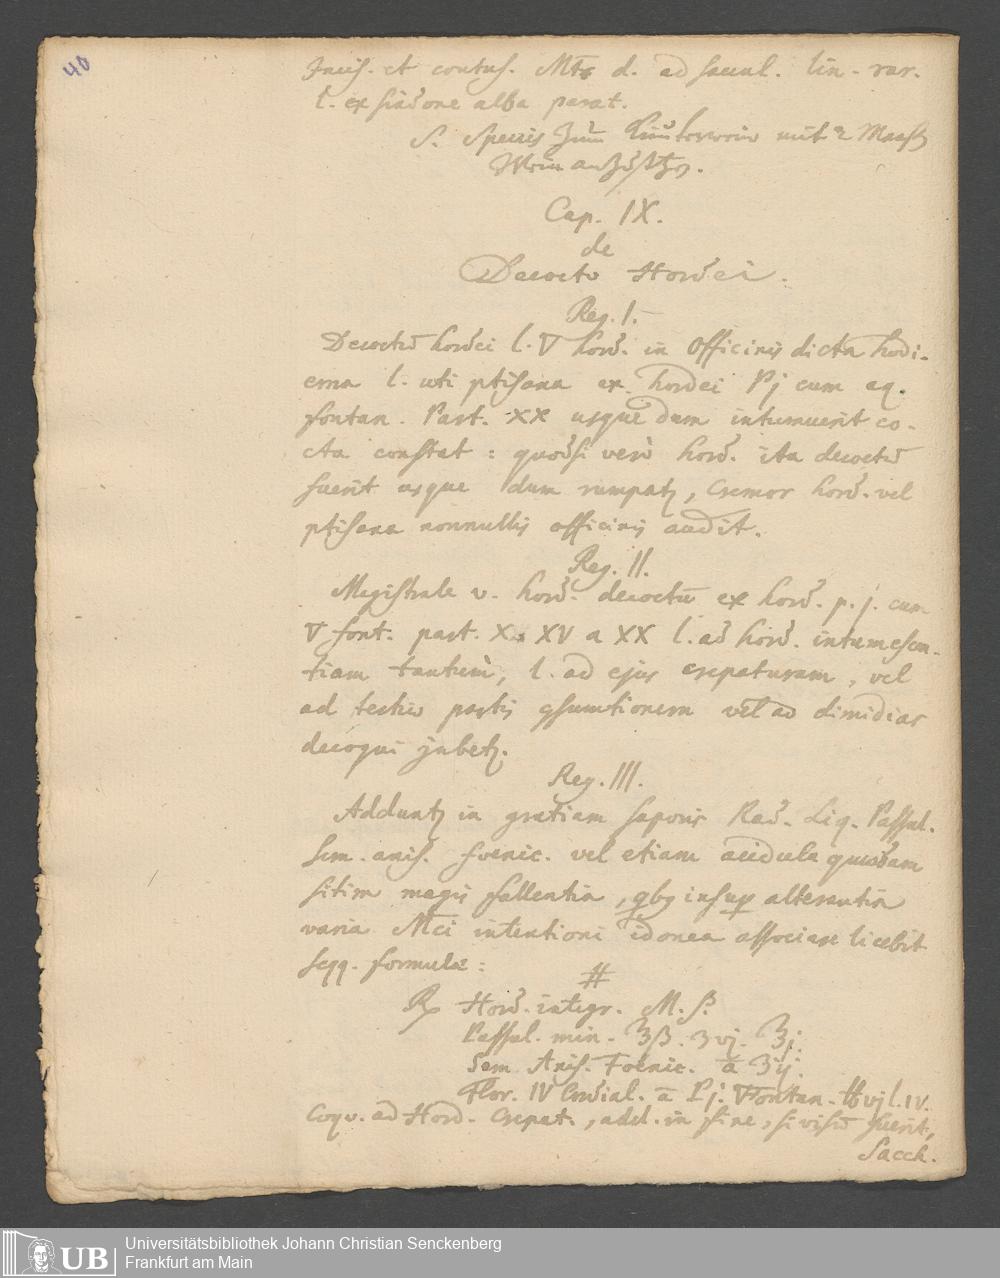 40
Incis. et contus. Mts d. ad saccul. lin. rar.
l. ex sindone alba parat.
S. Species zum Kräuterwein mit 2 Maaß
Wein anzusetzen.
Cap. IX.
de
Decocto Hordei.
Reg. I.
Decoctū hordei l. ▽ hord. in Officinis dicta hodi-
erna l. uti ptisana ex hordei Pj cum aq.
fontan. Part. XX usque dum intumuerit co-
cta constat: quodsi verò hord. ita decoctū
fuerit usque dum rumpatz, Cremor hord. vel
ptisana nonnullis officinis audit.
Reg. II.
Magistrale v. hord. decoctū ex hord. p. j. cum
▽ font. part. X. XV a XX l. ad hord. intumescen-
tiam tantum, l. ad ejus crepaturam, vel
ad tertiū partis qsumtionem vel ad dimidias
decoqui jubetz.
Reg. III.
Adduntz in gratiam saporis Rad. Liq. Passul.
Sem. anis. foenic. vel etiam acidula quaedam
sitim magis fallentia, qbq insup alterantia
varia Mci intentioni idonea associare licebit
seqq. formulæ:
#
℞ Hord. integr. M. ß.
Passul. min. ʒß. ʒvj. ʒj.
Sem. Anis. Foenic. ā ʒij.
Flor. IV Cordial. ā Pj. ▽ Fontan. ℔ vj l. IV.
Coqv. ad Hord. Crepat., add. in fine, si visū fuerit,
Sacch.
UB
Universitätsbibliothek Johann Christian Senckenberg
Frankfurt am Main